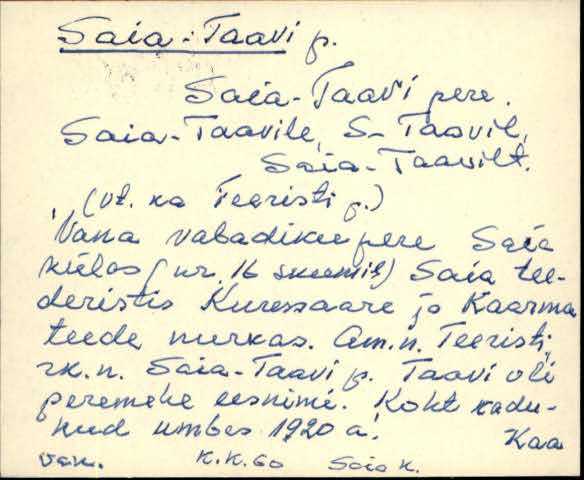 Saia-Taavi p.
Saia-Taavi pere.
Saia-Taavile, S-Taavil,
Saia-Taavilt.
(vt. ka Teeristi p.)
Vana vabadikupere Saia
külas (nr. 16 skeemil) Saia tee-
deristis Kuressaare ja Kaarma
teede nurkas. Am.n. Teeristi,
rk.n. Saia-Taavi p. Taavi oli
peremehe eesnimi. Koht kadu-
nud umbes 1920 a.
Kaa
K.K. 60 Saia k.